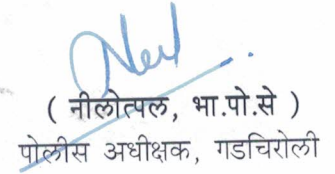 ( नीलोत्पल, भा.पो.से )
पोलीस अधीक्षक, गडचिरोली